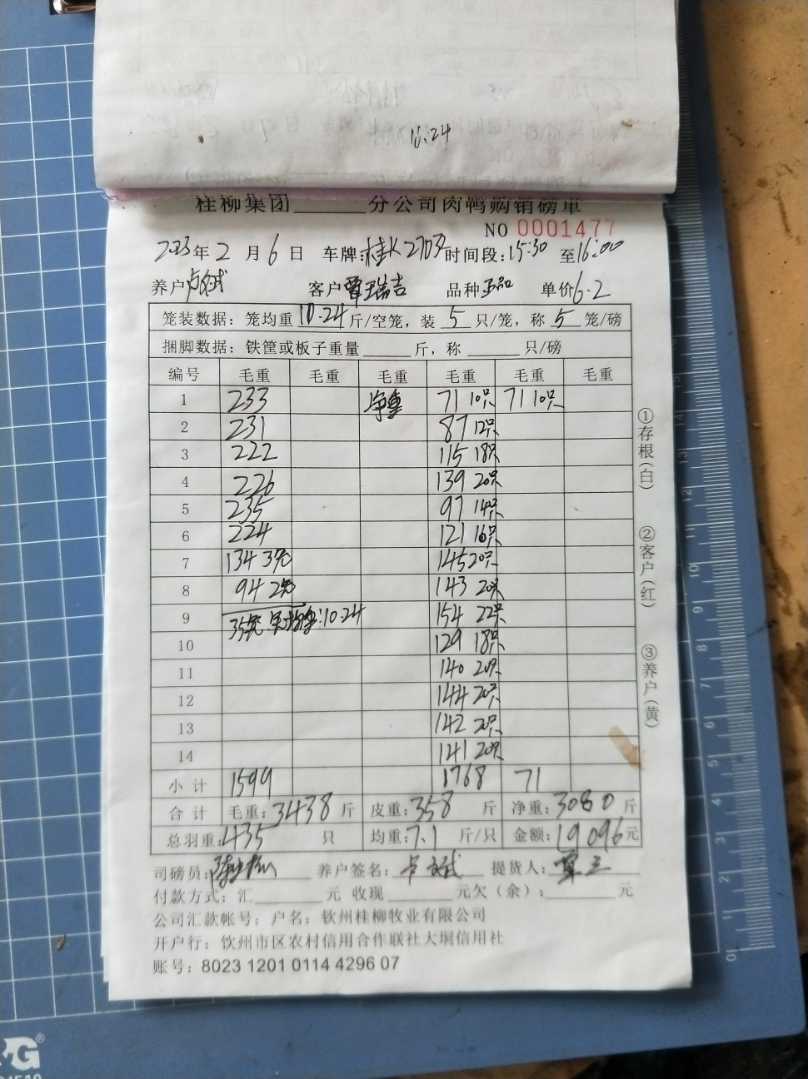 10.24
桂柳集团______分公司肉鸭购销磅单
NO 0001477
2023年2月6日 车牌: 时间段:15:30 至16:00
养户 客户覃瑞吉 品种正品 单价6.2
笼装数据: 笼均重10.24斤/空笼, 装5只/笼, 称5笼/磅
捆脚数据: 铁筐或板子重量______斤, 称______只/磅
编号 毛重 毛重 毛重 毛重 毛重 毛重
1 233 净重 71 10只 71 10只
2 231 87 12只
3 222 115 18只
4 226 139 20只
5 235 97 14只
6 224 121 16只
7 134 3笼 145 20只
8 94 2笼 143 20只
9 35笼 :10.24 154 22只
10 129 18只
11 140 20只
12 144 20只
13 142 20只
14 141 20只
小计 1599 1768 71
合计 毛重:3438斤 皮重:358斤 净重:3080斤
总羽重:435只 均重:7.1斤/只 金额:19096元
司磅员: 养户签名: 提货人:
付款方式: 汇______元 收现______元欠(余):______元
公司汇款帐号: 户名: 钦州桂柳牧业有限公司
开户行: 钦州市区农村信用合作联社大垌信用社
账号: 8023 1201 0114 4296 07
①存根(白)
②客户(红)
③养户(黄)
15 14 13 12 11 10 9 8 7 6 5 4 3 2 1 0